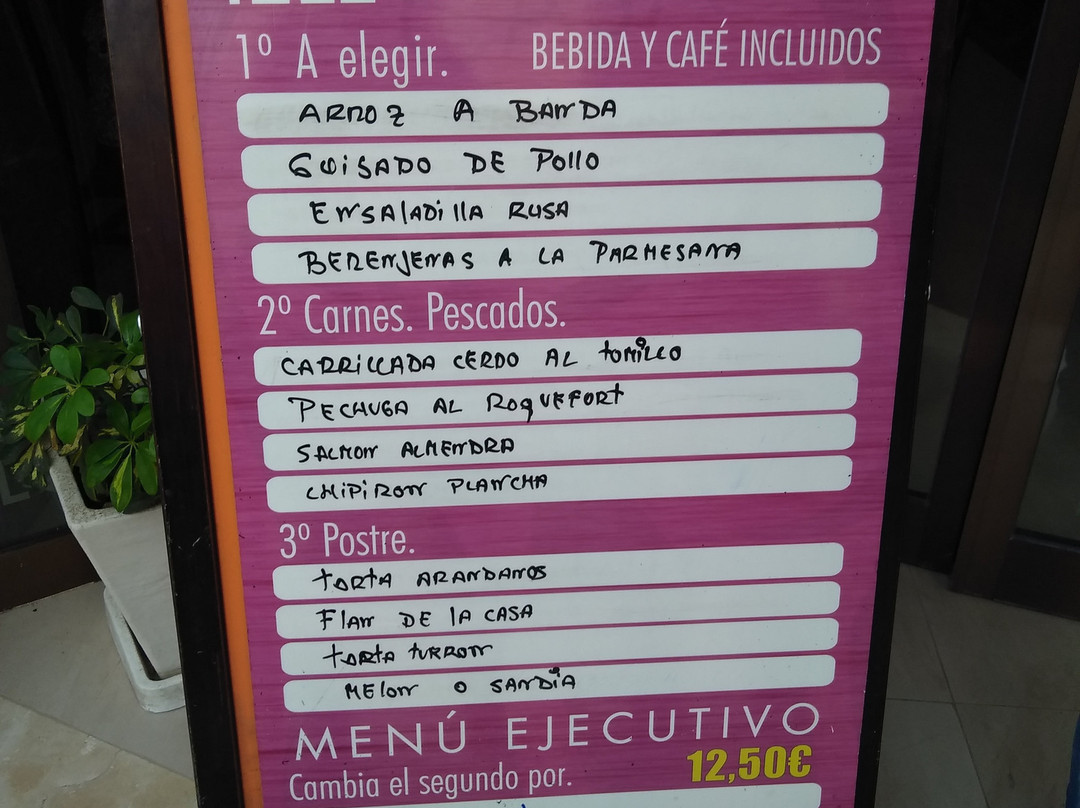 1º A elegir. BEBIDA Y CAFÉ INCLUIDOS
ARROZ A BANDA
GUISADO DE POLLO
ENSALADILLA RUSA
BERENJENAS A LA PARMESANA
2º Carnes. Pescados.
CARRILLADA CERDO AL TOMILLO
PECHUGA AL ROQUEFORT
SALMON ALMENDRA
CHIPIRON PLANCHA
3º Postre.
TORTA ARANDANOS
FLAN DE LA CASA
TORTA TURRON
MELON O SANDÍA
MENÚ EJECUTIVO
Cambia el segundo por. 12,50€